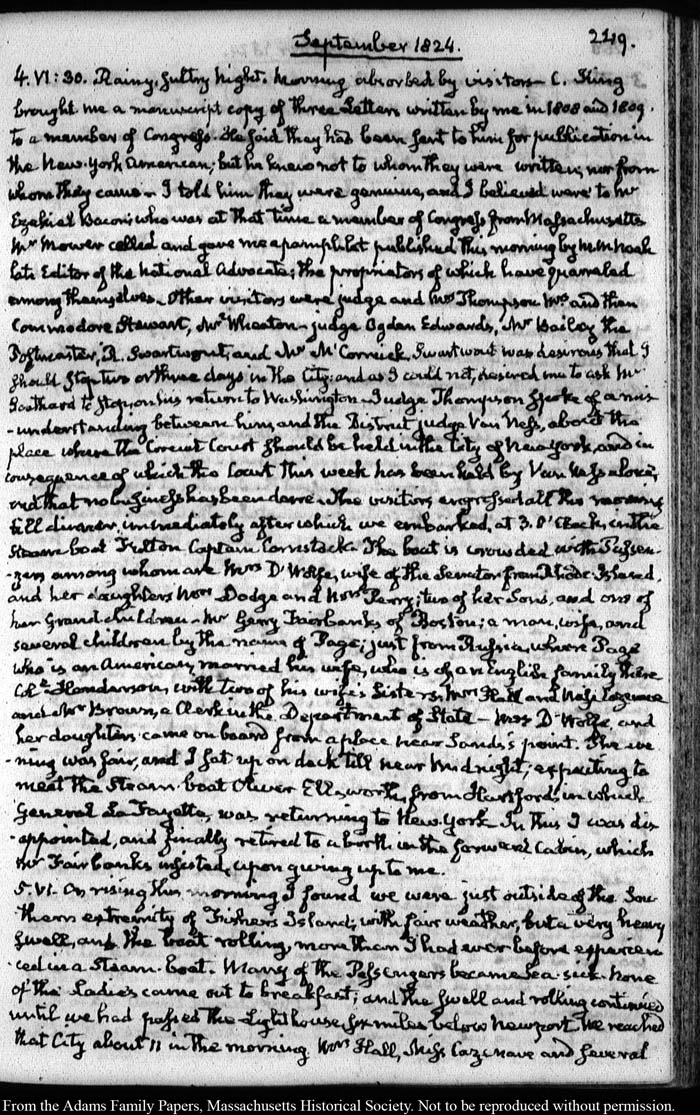 September 1824.
219.
4. VI: 30. Rainy, sultry night. Morning absorbed by visitors — C. King
brought me a manuscript copy of three Letters written by me in 1808 and 1809.
to a member of Congress. He said they had been sent to him for publication in
the New-York American; but he knew not to whom they were written, nor from
whom they came — I told him they were genuine, and I believed were to Mr
Ezekiel Bacon, who was at that time a member of Congress from Massachusetts
Mr Mower called and gave me a pamphlet published this morning by M. M. Noah
late Editor of the National Advocate; the proprietors of which have quarreled
among themselves. Other visitors were judge and Mrs Thompson Mrs and then
Commodore Stewart, Mr Wheaton — judge Ogden Edwards, Mr Bailey the
Postmaster, R. Swartwout, and Mr McCormick. Swartwout was desirous that I
should stop two or three days in the City: and as I could not, desired me to ask Mr
Southard to stop, on his return to Washington — Judge Thompson spoke of a mis
-understanding between him, and the District judge Van Ness, about the
place where the Circuit Court should be held in the City of New-York, and in
consequence of which the Court this week has been held by Van Ness alone,
and that no business has been done. The visitors engrossed all the morning
till dinner, immediately after which we embarked, at 3. O'Clock, in the
Steam-boat Fulton Captain Comstock. The boat is crowded with Passen-
-gers among whom are Mrs D'Wolfe, wife of the Senator from Rhode-Island,
and her daughters Mrs Dodge and Mrs Perry; two of her Sons, and one of
her Grand children — Mr Gerry Fairbanks of Boston; a man, wife, and
several children by the name of Page; just from Russia, where Page
who is an American, married his wife, who is of an English family there
Coll Henderson, with two of his wife's Sisters, Mrs Hall and Miss Cazenave
and Mr Brown, a Clerk in the Department of State — Mrs D'Wolfe, and
her daughters came on board from a place near Sands's point. The eve
-ning was fair, and I sat up on deck till near Midnight, expecting to
meet the Steam-boat Oliver Ellsworth, from Hartford, in which
General La Fayette, was returning to New-York. In this I was dis
-appointed, and finally retired to a birth in the forward Cabin, which
Mr Fairbanks insisted, upon giving up to me.
5. VI. On rising this morning I found we were just outside of the Sou
thern extremity of Fisher's Island; with fair weather, but a very heavy
swell, and the boat rolling, more than I had ever before experien
-ced in a Steam-boat. Many of the Passengers became Sea-sick. None
of the Ladies came out to breakfast; and the swell and rolling continued
until we had passed the Light house, six miles below Newport. We reached
that City about 11 in the morning. Mrs Hall, Miss Cazenave and several
From the Adams Family Papers, Massachusetts Historical Society. Not to be reproduced without permission.